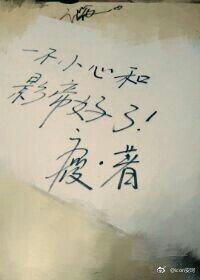 一不小心和
影帝好了!
疲·著